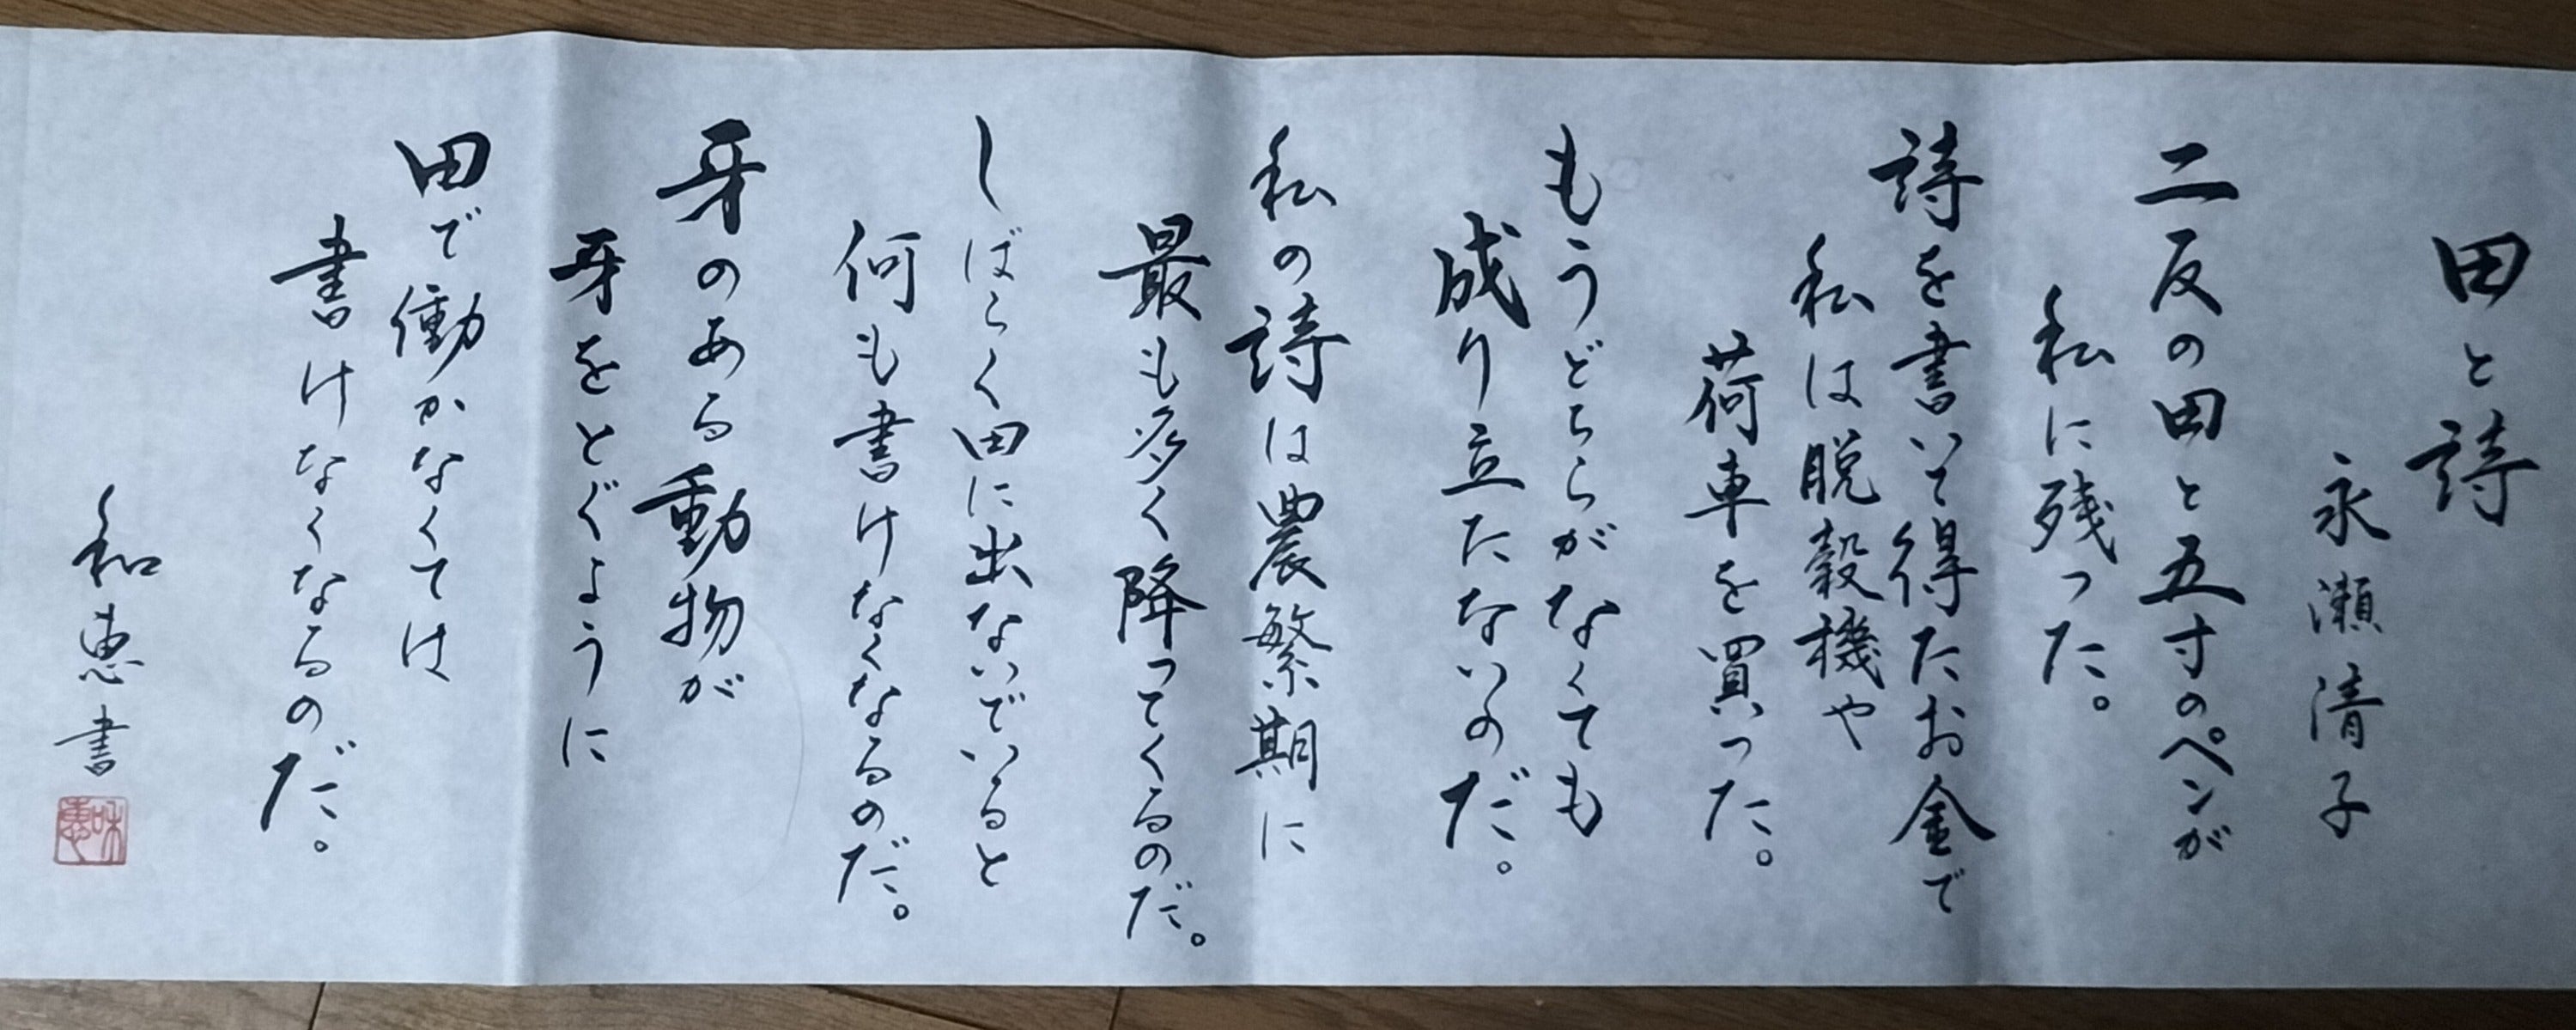 田と詩
永瀬清子
二反の田と五寸のペンが
私に残った。
詩を書いて得たお金で
私は脱穀機や
荷車を買った。
もうどちらがなくても
成り立たないのだ。
私の詩は農繁期に
最も多く降ってくるのだ。
しばらく田に出ないでいると
何も書けなくなるのだ。
牙のある動物が
牙をとぐように
田で働かなくては
書けなくなるのだ。
和恵書
和恵